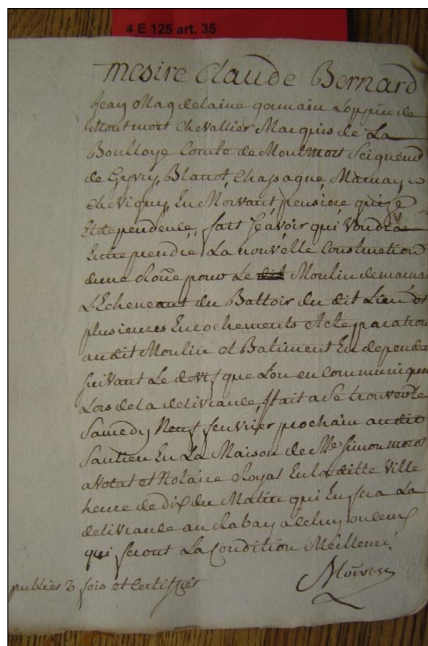 4 E 125 art. 35
mesire Claude Bernard
Jean Magdelaine gormain Loppin de
Montmort Chevallier Marquis de La
Boulloye Comte de Montmort Seigneur
de Gyvry, Blanot, Chassagne, Marnay
chevigny, En Morvant,
Et dependence, fait sçavoir qui voudra
Entreprendre La nouvelle Construction
dune Roüe pour Le dit Moulin de marnay
du Battoir du dit Lieu et
plusieures Enrochements et Reparation
audit Moulin et Batiment En dependa
suivant Le devis que Lon en communiquera
Lors de la delivrance, fait a Se trouver le
Samedy Neuf fevrier prochain audit
Saulieu En La Maison de Me Simon
avocat et Notaire Royal En La ditte Ville
heure de Dix du Matin qui En fera La
delivrance au Rabay a celuy ou ceux
qui feront La Condition Meilleure
publies 3 fois et Certiffiés